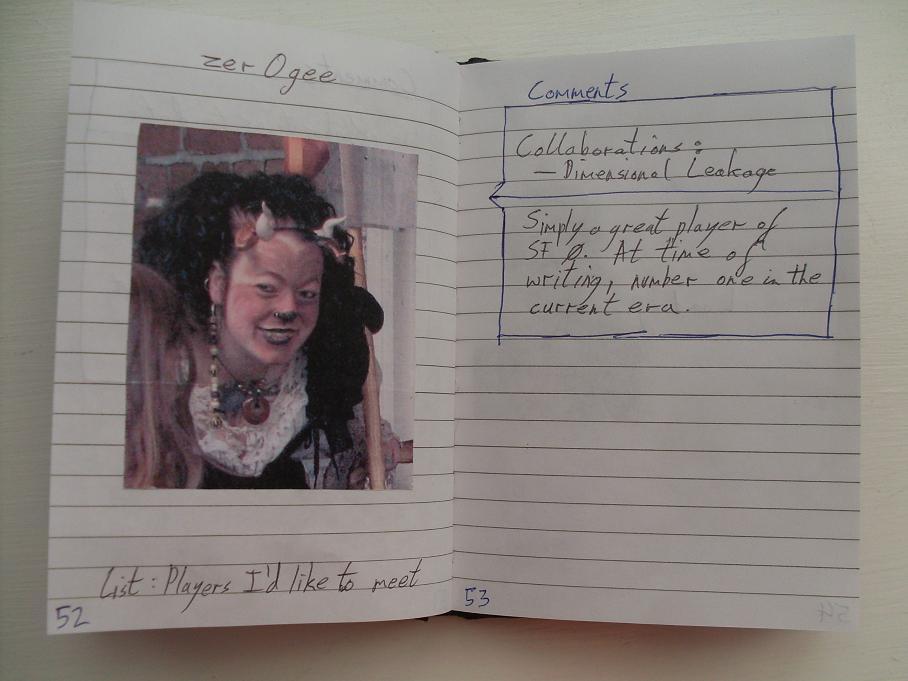 zer Ogee
List : Players I'd like to meet
52
Comments
Collaborations :
– Dimensional Leakage
Simply a great player of
SF Ø. At time of
writing, number one in the
current era.
53
54